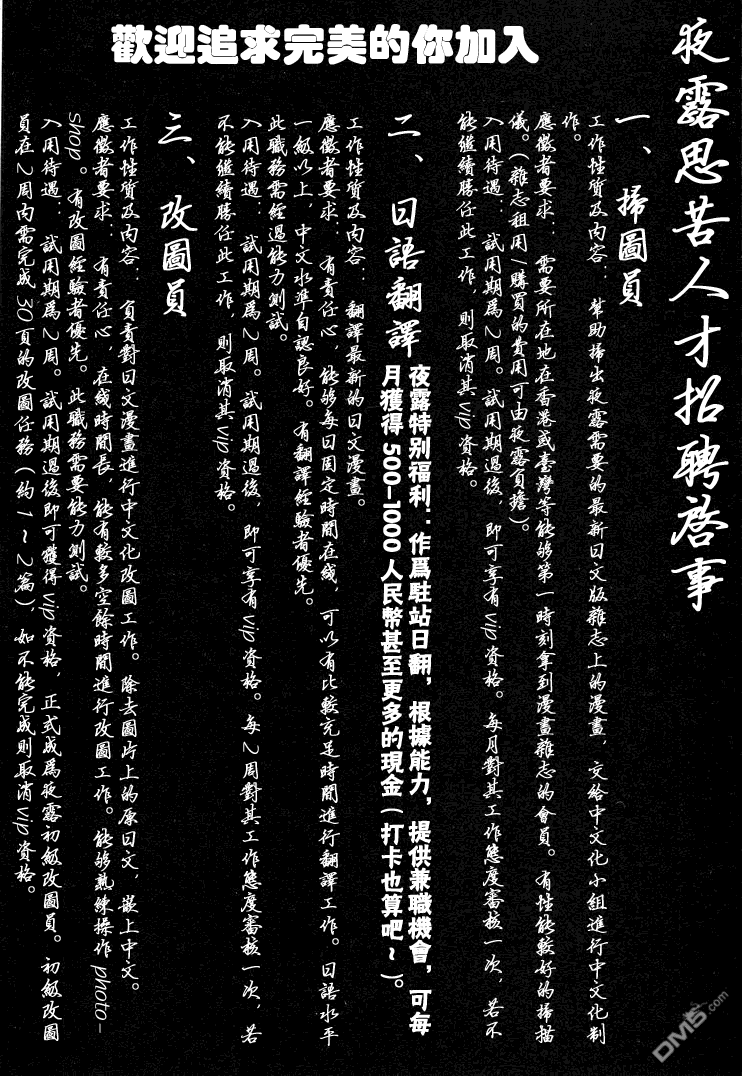 夜露思苦人才招聘啓事
一、掃圖員
工作性質及内容：幫助掃出夜露需要的最新日文版雜志上的漫畫，交給中文化小組進行中文化制
作。
應徵者要求：需要所在地在香港或臺灣等能够第一時刻拿到漫畫雜志的會員。有性能較好的掃描
儀。（雜志租用/購買的費用可由夜露負擔）。
入用待遇：試用期爲2周。試用期過後，即可享有vip資格。每月對其工作態度審核一次，若不
能繼續勝任此工作，則取消其vip資格。
二、日語翻譯
夜露特别福利：作爲駐站日翻，根據能力，提供兼職機會，可每
月獲得500-1000人民幣甚至更多的現金（打卡也算吧~）。
工作性質及内容：翻譯最新的日文漫畫。
應徵者要求：有責任心，能够每日固定時間在綫，可以有比較充足時間進行翻譯工作。日語水平
一級以上，中文水準自認良好。有翻譯經驗者優先。
此職務需經過能力測試。
入用待遇：試用期爲2周。試用期過後，即可享有vip資格。每2周對其工作態度審核一次，若
不能繼續勝任此工作，則取消其vip資格。
三、改圖員
工作性質及内容：負責對日文漫畫進行中文化改圖工作。除去圖片上的原日文，嵌上中文。
應徵者要求：有責任心，在綫時間長，能有較多空餘時間進行改圖工作。能够熟練操作photo-
shop。有改圖經驗者優先。此職務需要能力測試。
入用待遇：試用期爲2周。試用期過後即可獲得vip資格，正式成爲夜露初級改圖員。初級改圖
員在2周内需完成30頁的改圖任務（約1~2篇），如不能完成則取消vip資格。
歡迎追求完美的你加入
DM5.com